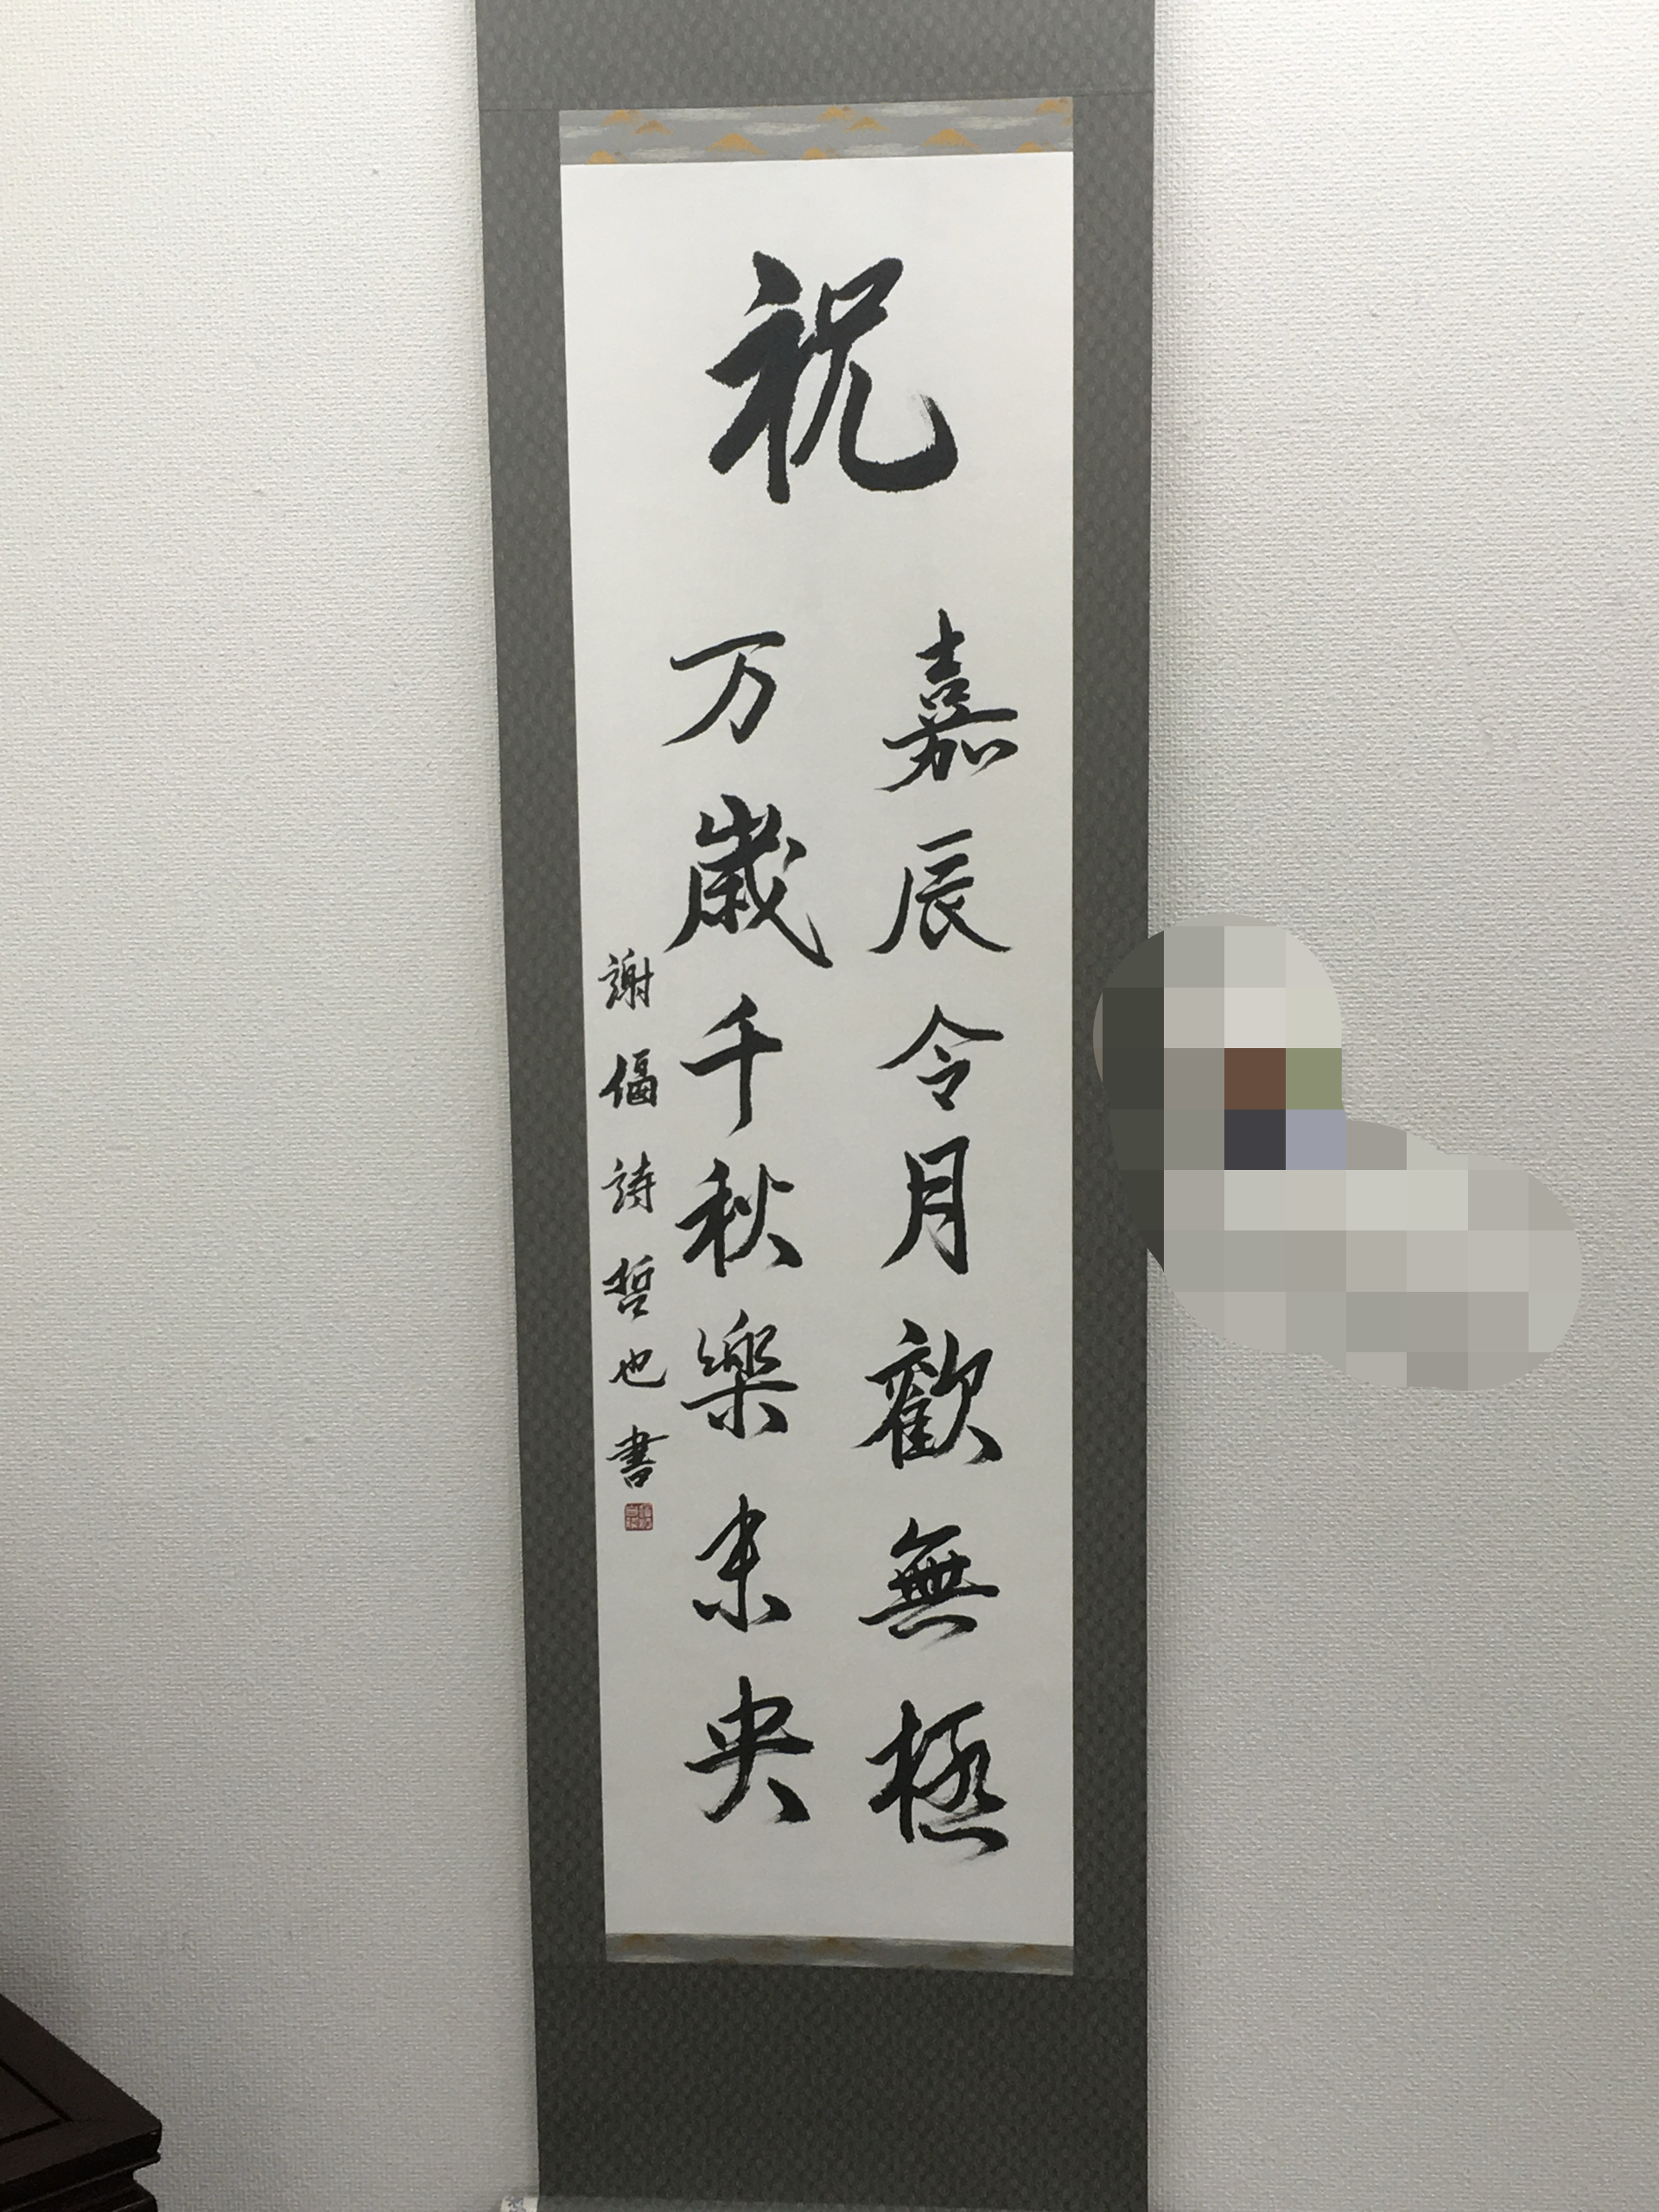 祝
嘉辰令月歡無極
万歳千秋樂未央
謝偃詩哲也書